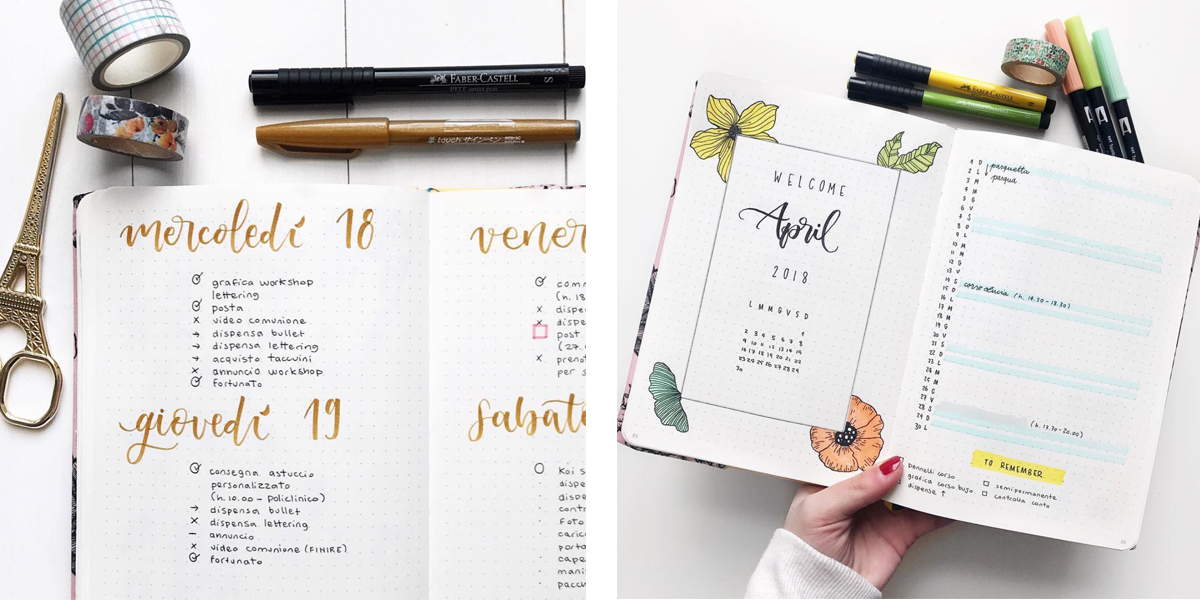 FABER-CASTELL
PITT artist pen
S
touch サインペン
mercoledí 18
grafica workshop
lettering
posta
video comunione
dispensa bullet
dispensa lettering
acquisto taccuini
annuncio workshop
fortunato
giovedí 19
consegna astuccio
personalizzato
(h.10.00 - policlinico)
dispensa bullet
dispensa lettering
annuncio
video comunione (FINIRE)
fortunato
vener
com
(h. 18
dispe
dispe
post
(27.
prenot
per s
sabato
Koi s
dispe
dispe
cont
foto
caric
porta
cape
mani
pacch
FABER-CASTELL
FABER-CASTELL
WELCOME
April
2018
L M M G V S D
1
2 3 4 5 6 7 8
9 10 11 12 13 14 15
16 17 18 19 20 21 22
23 24 25 26 27 28 29
30
1 D pasquetta
2 L pasqua
3 M
4 M
5 G
6 V
7 S
8 D
9 L
10 M
11 M
12 G
13 V
14 S
15 D corso Lucia (h. 14.30 - 18.30)
16 L
17 M
18 M
19 G
20 V
21 S
22 D
23 L
24 M
25 M
26 G
27 V
28 S
29 D (h. 17.30 - 20.00)
30 L
TO REMEMBER
pannelli corso
grafica corso bujo
dispense ↑
semipermanente
controlla conto